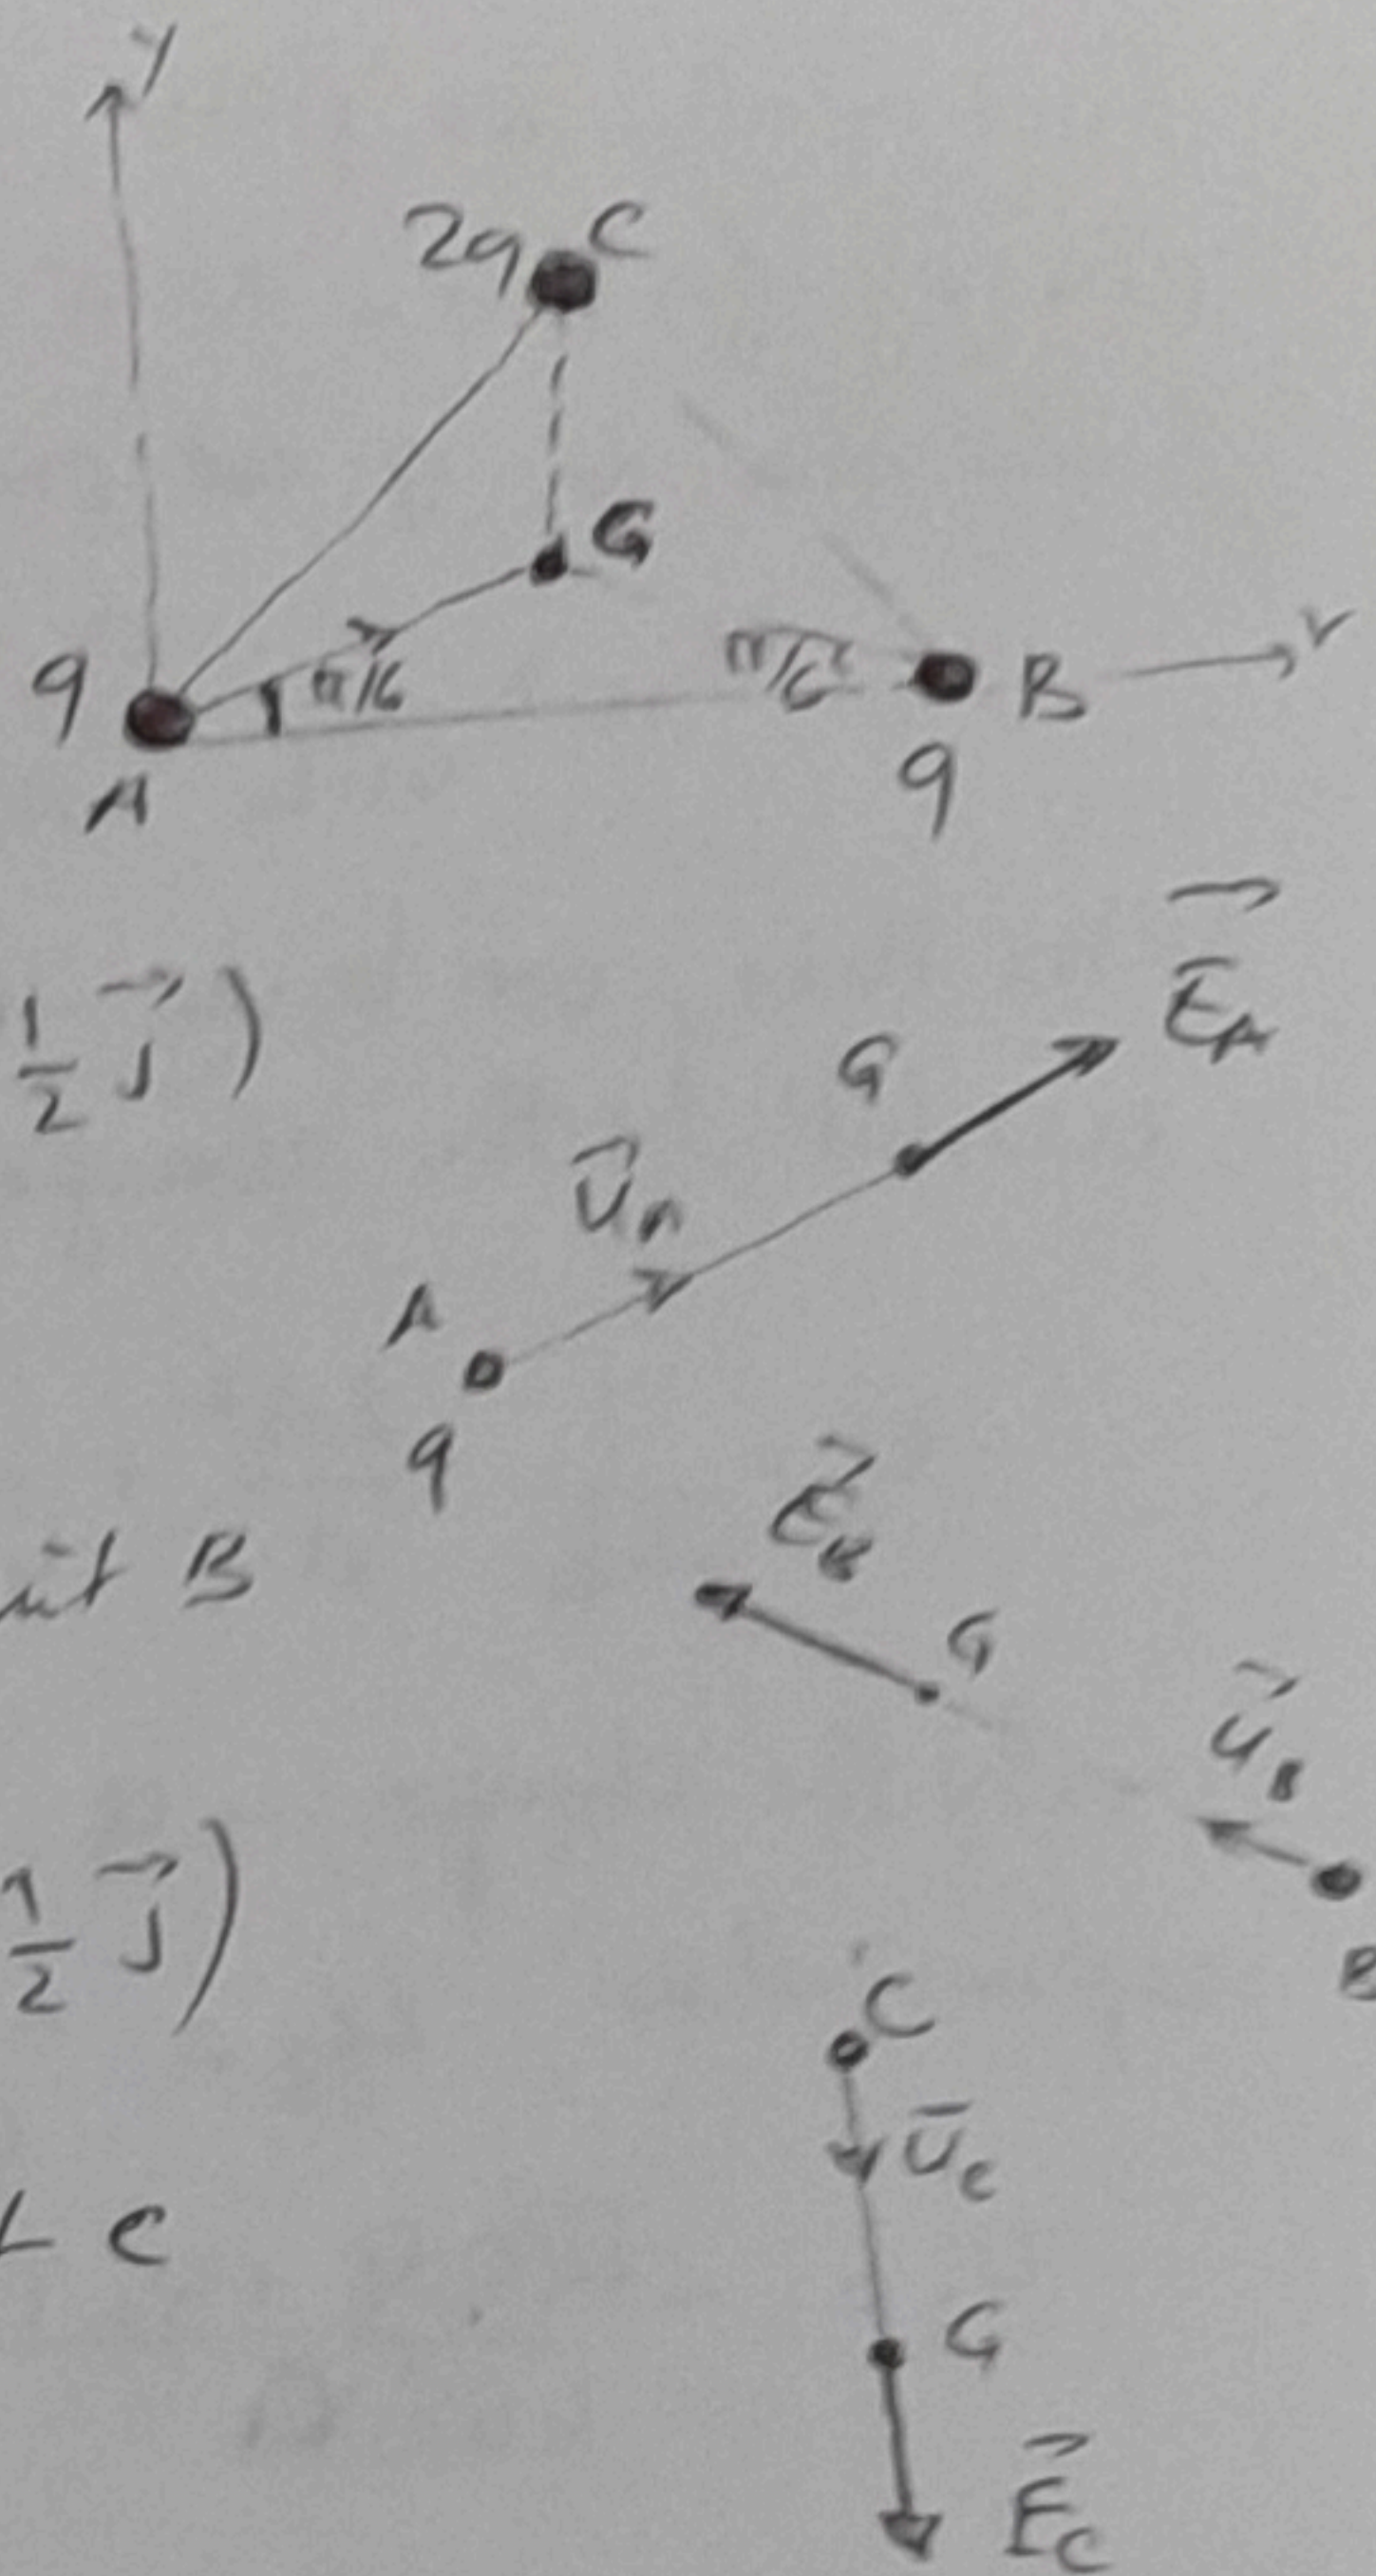 y
2q C
G
q π/6 π/6 B
A q
1/2 j⃗ )
E⃗A
G
U⃗A
A
q
B
E⃗B
G
u⃗B
1/2 j⃗ )
B
C
U⃗C
C
G
E⃗C